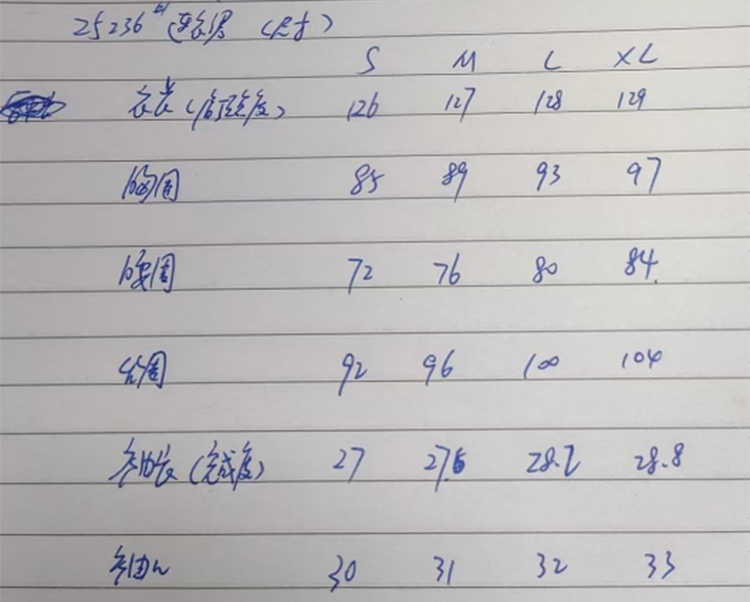 25236# 连衣裙 (尺寸)
S M L XL
衣长 126 127 128 129
胸围 85 89 93 97
腰围 72 76 80 84
臀围 92 96 100 104
袖长(完成度) 27 27.6 28.2 28.8
袖口 30 31 32 33